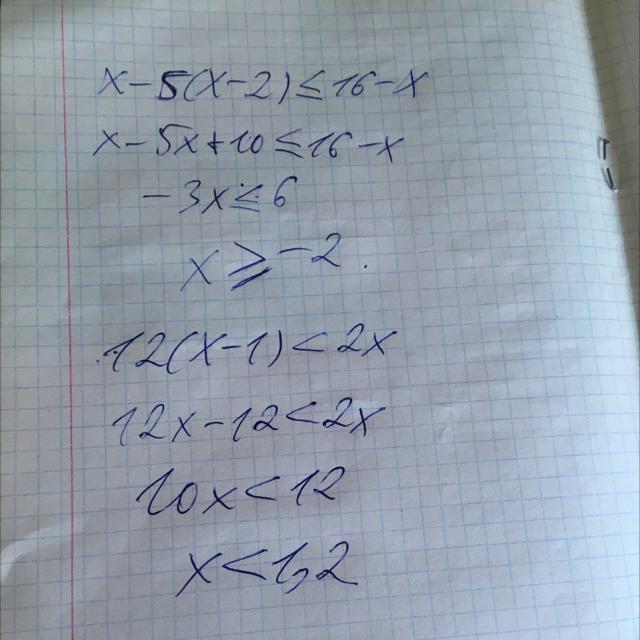 x-5(x-2)≤16-x
x-5x+10≤16-x
-3x≤6
x≥-2.
12(x-1)<2x
12x-12<2x
10x<12
x<1,2